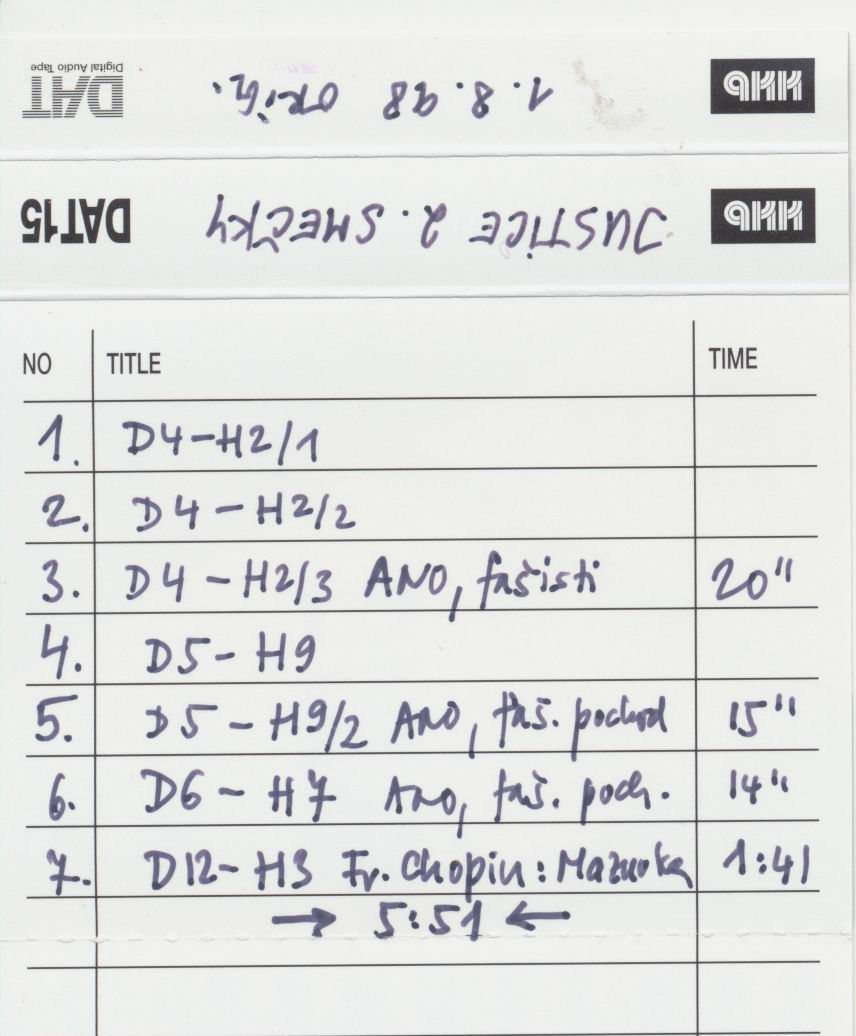 HHb 1.8.98 ORIG. DAT
Digital Audio Tape
HHb JUSTICE 2. SMEČKY DAT15
NO TITLE TIME
1. D4-H2/1
2. D4-H2/2
3. D4-H2/3 ANO, fašisti 20"
4. D5-H9
5. D5-H9/2 ANO, faš. pochod 15"
6. D6-H7 ANO, faš. poch. 14"
7. D12-H3 Fr. Chopin: Mazurka 1:41
→ 5:51 ←